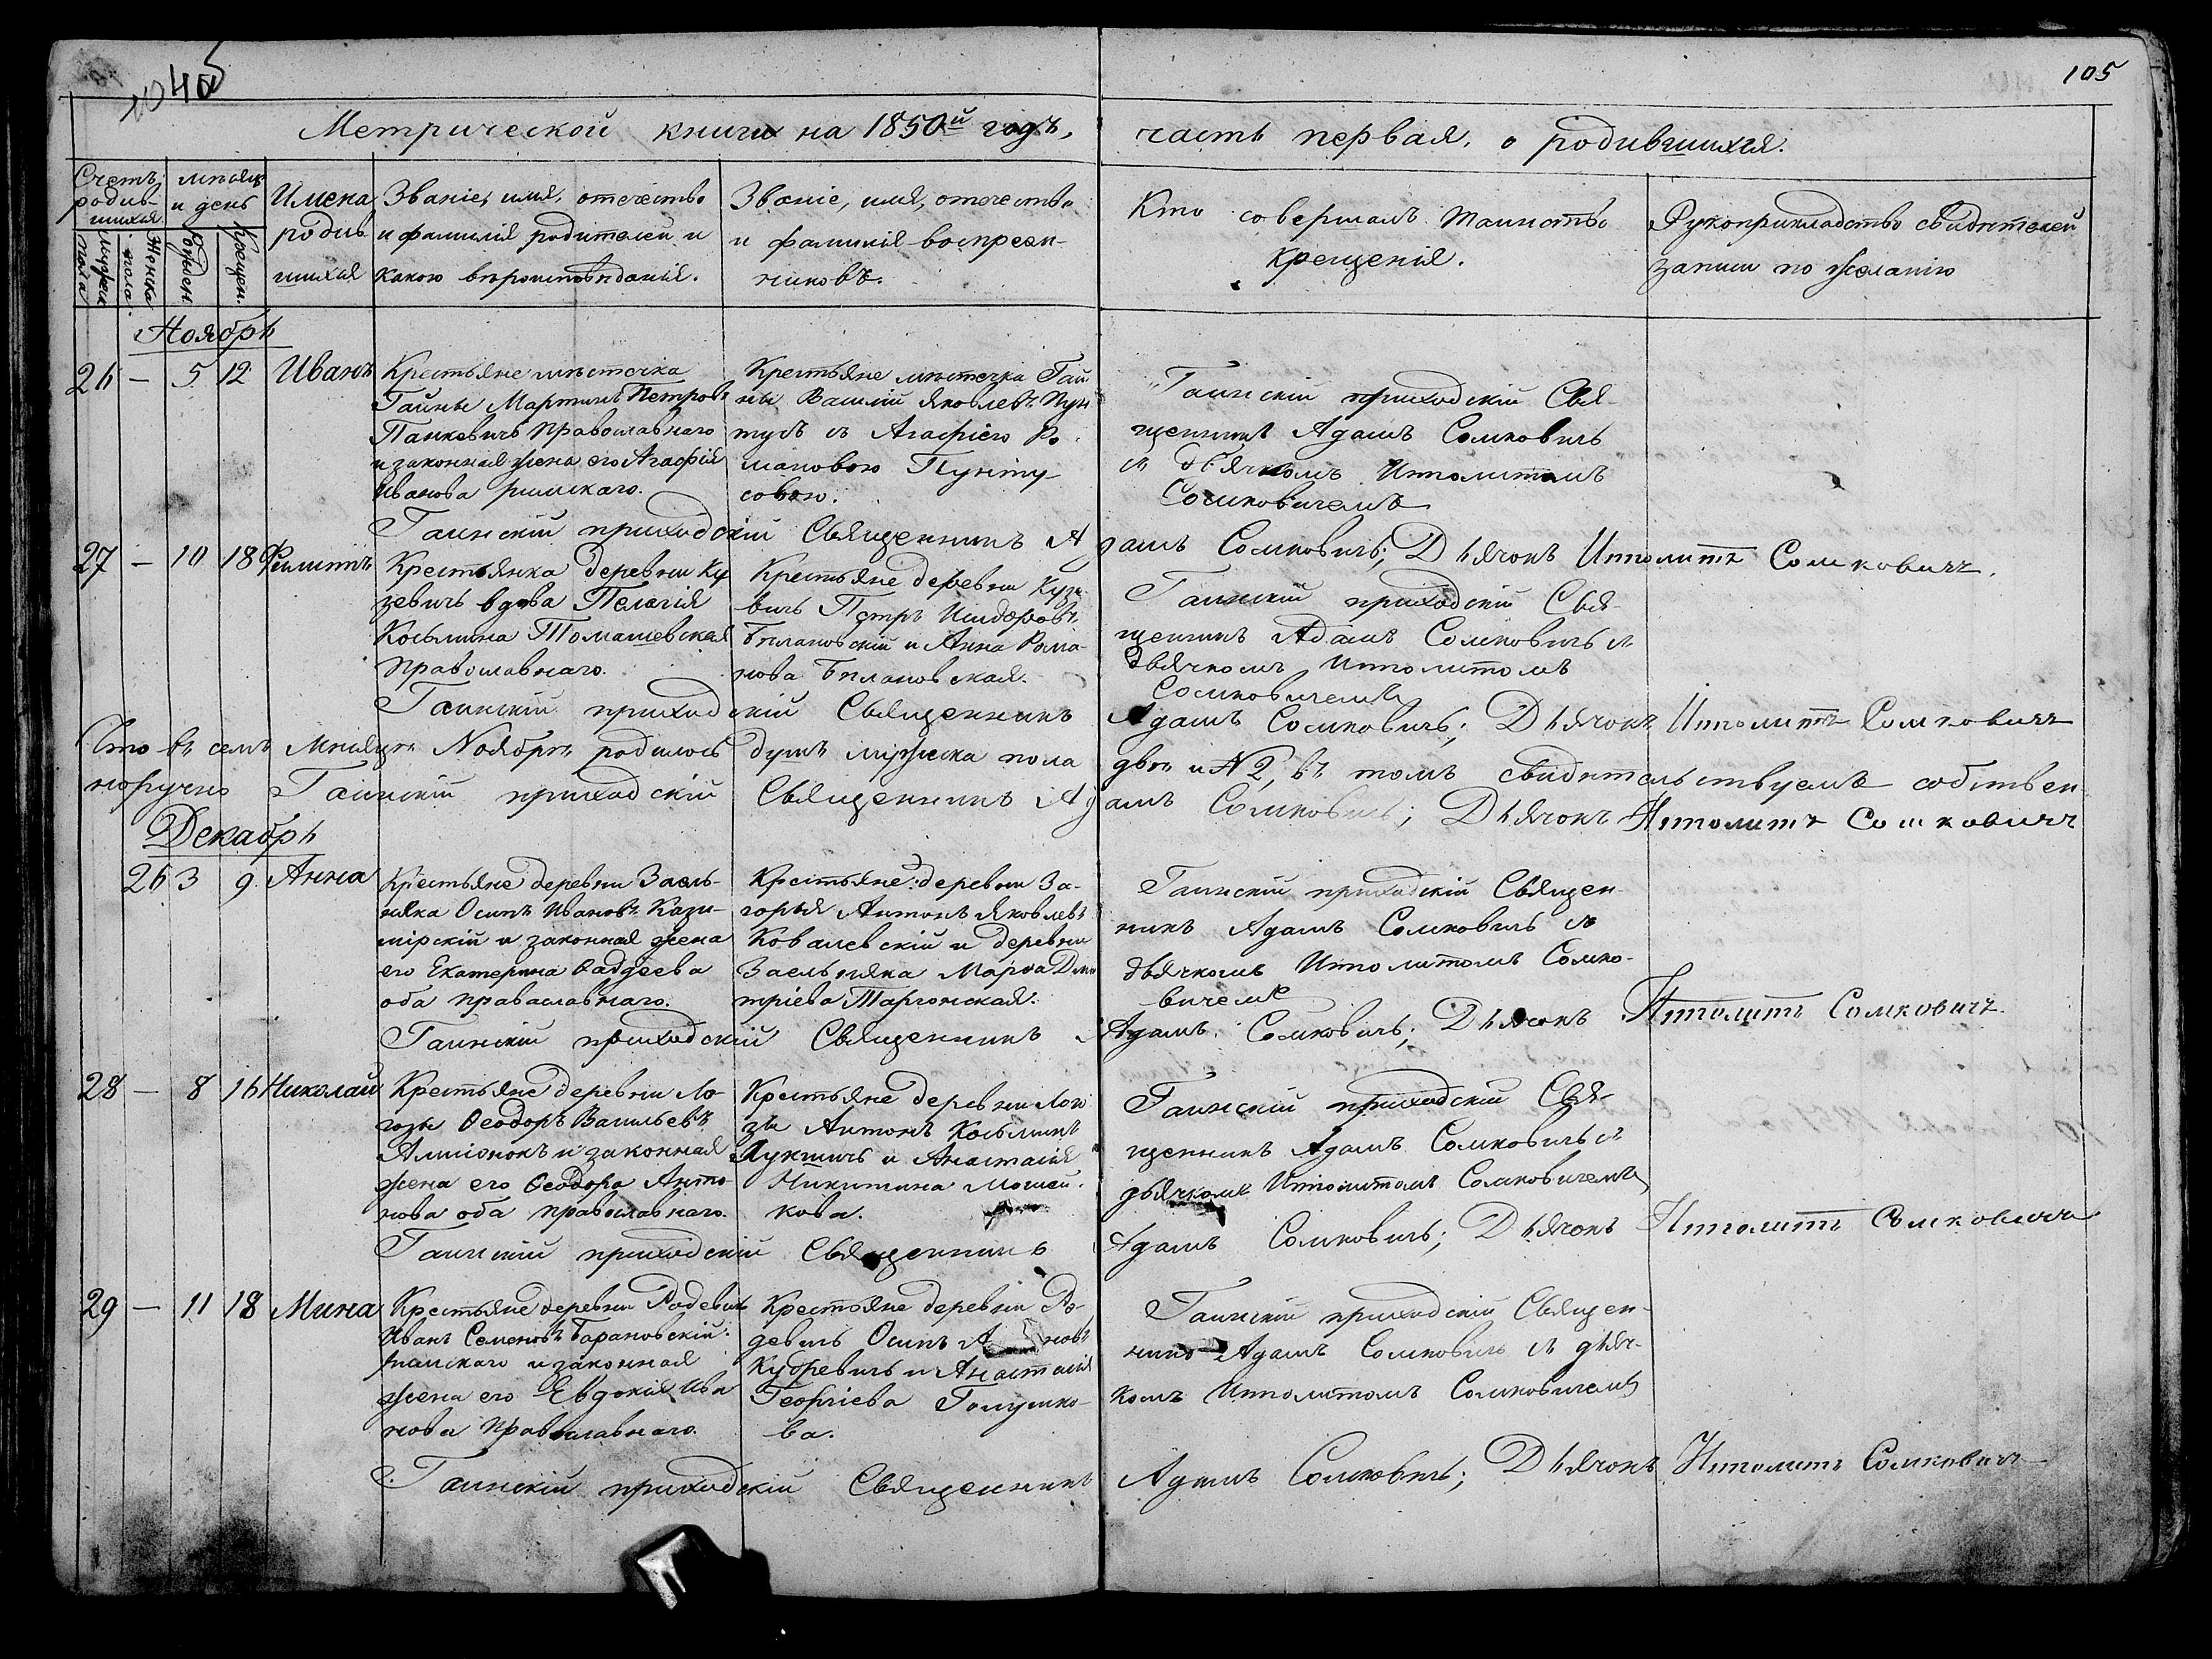 105
Метрической книги на 1850й годъ,
часть первая, о родившихся.
Счетъ родив-
шихся
мѣсяцъ
и день
Мужеска
пола
Женска
пола
Рожден.
Крещен.
Имена
родив
шихся
Званіе, имя, отечество
и фамилія родителей и
какого вѣроисповѣданія.
Званіе, имя, отечество
и фамилія воспреем-
никовъ.
Кто совершалъ таинство
крещенія.
Рукоприкладство свидѣтелей
записи по желанію
Ноябрь
26 — 5 12 Иванъ
Крестьяне мѣстечка
Гайны Мартинъ Петровъ
Панкевичъ православнаго
и законная жена его Агафія
Иванова римскаго.
Крестьяне мѣстечка Гай
ны Василій Яковлевъ Пун
тусъ съ Агафіею Ро
мановою Пунту-
совою.
Гаинскій приходскій Свя-
щенникъ Адамъ Сомковичъ
съ дьячкомъ Ипполитомъ
Сомковичемъ
Гаинскій приходскій Священникъ Адамъ Сомковичъ; Дьячокъ Ипполитъ Сомковичъ.
27 — 10 18 Филиппъ
Крестьянка деревни Ку
зевичъ вдова Пелагія
Косьмина Томашевская
православнаго.
Крестьяне деревни Кузе
вичъ Петръ Исидоровъ
Белановскій и Анна Рома-
нова Белановская.
Гаинскій приходскій Свя-
щенникъ Адамъ Сомковичъ съ
дьячкомъ Ипполитомъ
Сомковичемъ
Гаинскій приходскій Священникъ Адамъ Сомковичъ; Дьячокъ Ипполитъ Сомковичъ
Что въ семъ мѣсяцѣ Ноябрѣ родилось душъ мужеска пола двѣ и № 2, въ томъ свидѣтельствуемъ собствен
норучно Гаинскій приходскій Священникъ Адамъ Сомковичъ; Дьячокъ Ипполитъ Сомковичъ
Декабрь
26 3 9 Анна
Крестьяне деревни Заель-
няка Осипъ Ивановъ Кази-
мірскій и законная жена
его Екатерина Фаддеева
оба православнаго.
Крестьяне: деревни За-
горья Антонъ Яковлевъ
Ковалевскій и деревни
Заельняка Марфа Дми
тріева Таргонская.
Гаинскій приходскій Священ-
никъ Адамъ Сомковичъ съ
дьячкомъ Ипполитомъ Сомко-
вичемъ
Гаинскій приходскій Священникъ Адамъ Сомковичъ; Дьячокъ Ипполитъ Сомковичъ.
28 — 8 16 Николай
Крестьяне деревни Ло-
гозы Ѳеодоръ Васильевъ
и законная
жена его Ѳеодора Анто-
нова оба православнаго.
Крестьяне деревни Лого
зы Антонъ Косьминъ
Лукшичъ и Анастасія
Никитина Мошей-
кова.
Гаинскій приходскій Свя-
щенникъ Адамъ Сомковичъ съ
дьячкомъ Ипполитомъ Сомковичемъ
Гаинскій приходскій Священникъ Адамъ Сомковичъ; Дьячокъ Ипполитъ Сомковичъ
29 — 11 18 Мина
Крестьяне деревни Родевичъ
Иванъ Семеновъ Барановскій
римскаго и законная
жена его Евдокія Ива
нова православнаго.
Крестьяне деревни Ро-
девичъ Осипъ
Кудревичъ и Анастасія
Георгіева Голушко-
ва.
Гаинскій приходскій Священ-
никъ Адамъ Сомковичъ съ дьяч-
комъ Ипполитомъ Сомковичемъ
Гаинскій приходскій Священникъ Адамъ Сомковичъ; Дьячокъ Ипполитъ Сомковичъ